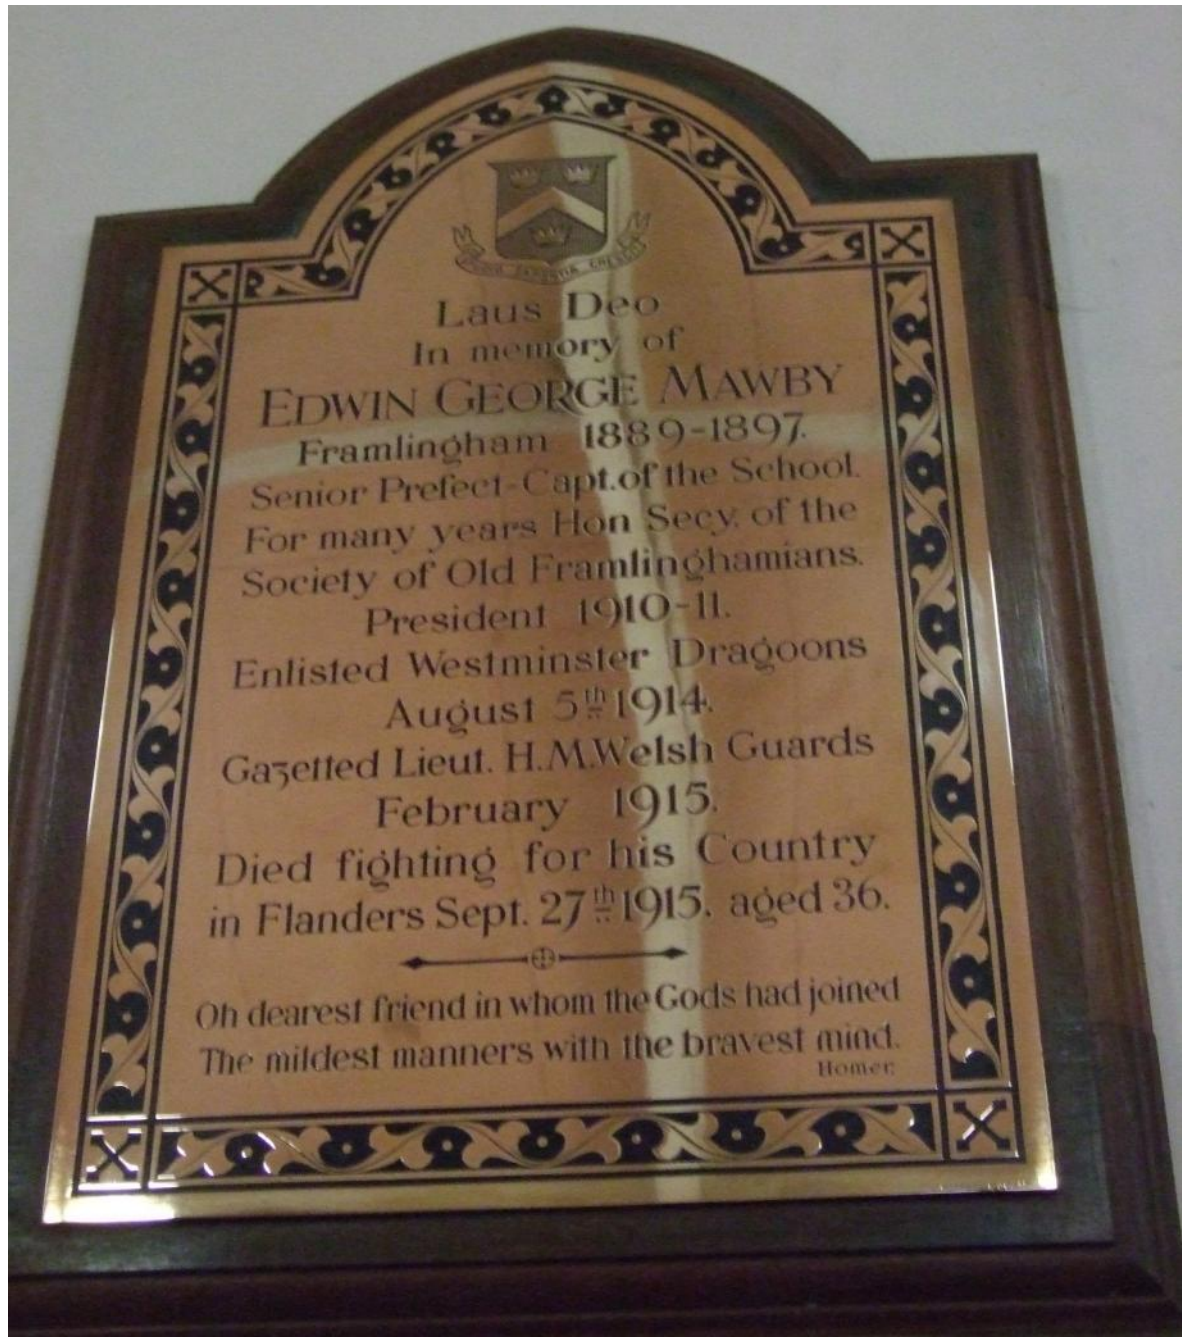 Laus Deo
In memory of
EDWIN GEORGE MAWBY
Framlingham 1889-1897.
Senior Prefect-Capt. of the School.
For many years Hon Secy. of the
Society of Old Framlinghamians.
President 1910-11.
Enlisted Westminster Dragoons
August 5th 1914.
Gazetted Lieut. H.M. Welsh Guards
February 1915.
Died fighting for his Country
in Flanders Sept. 27th 1915. aged 36.
Oh dearest friend in whom the Gods had joined
The mildest manners with the bravest mind.
Homer.